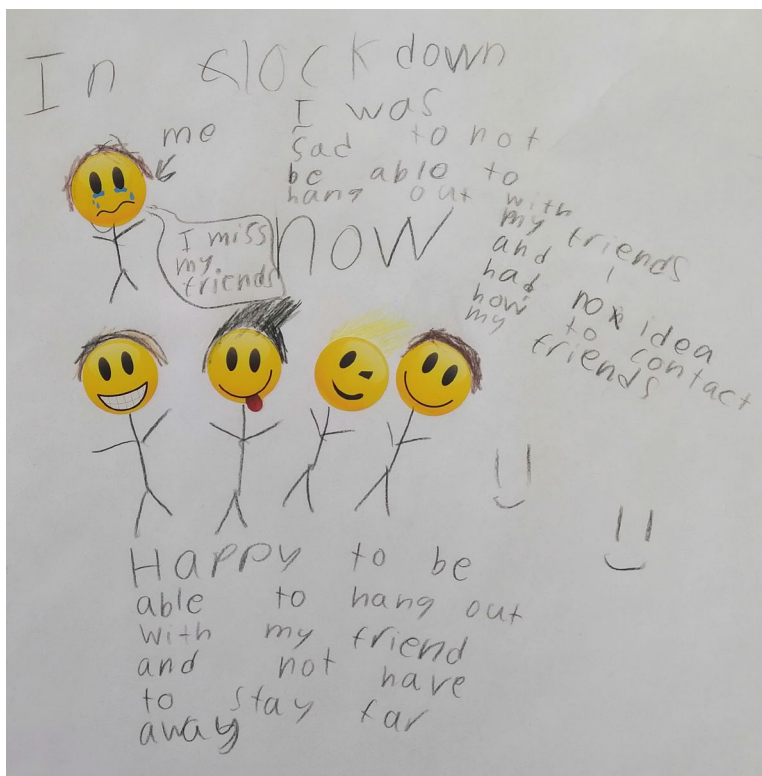 In lockdown
me
I was
sad to not
be able to
hang out with
my friends
and I
had no idea
how to contact
my friends
I miss
my.
friends
now
Happy to be
able to hang out
with my friend
and not have
to stay far
away